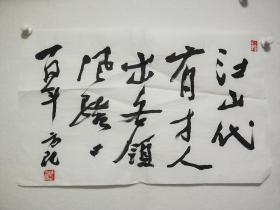 江山代
有才人
出各領
风骚
百年 方纪